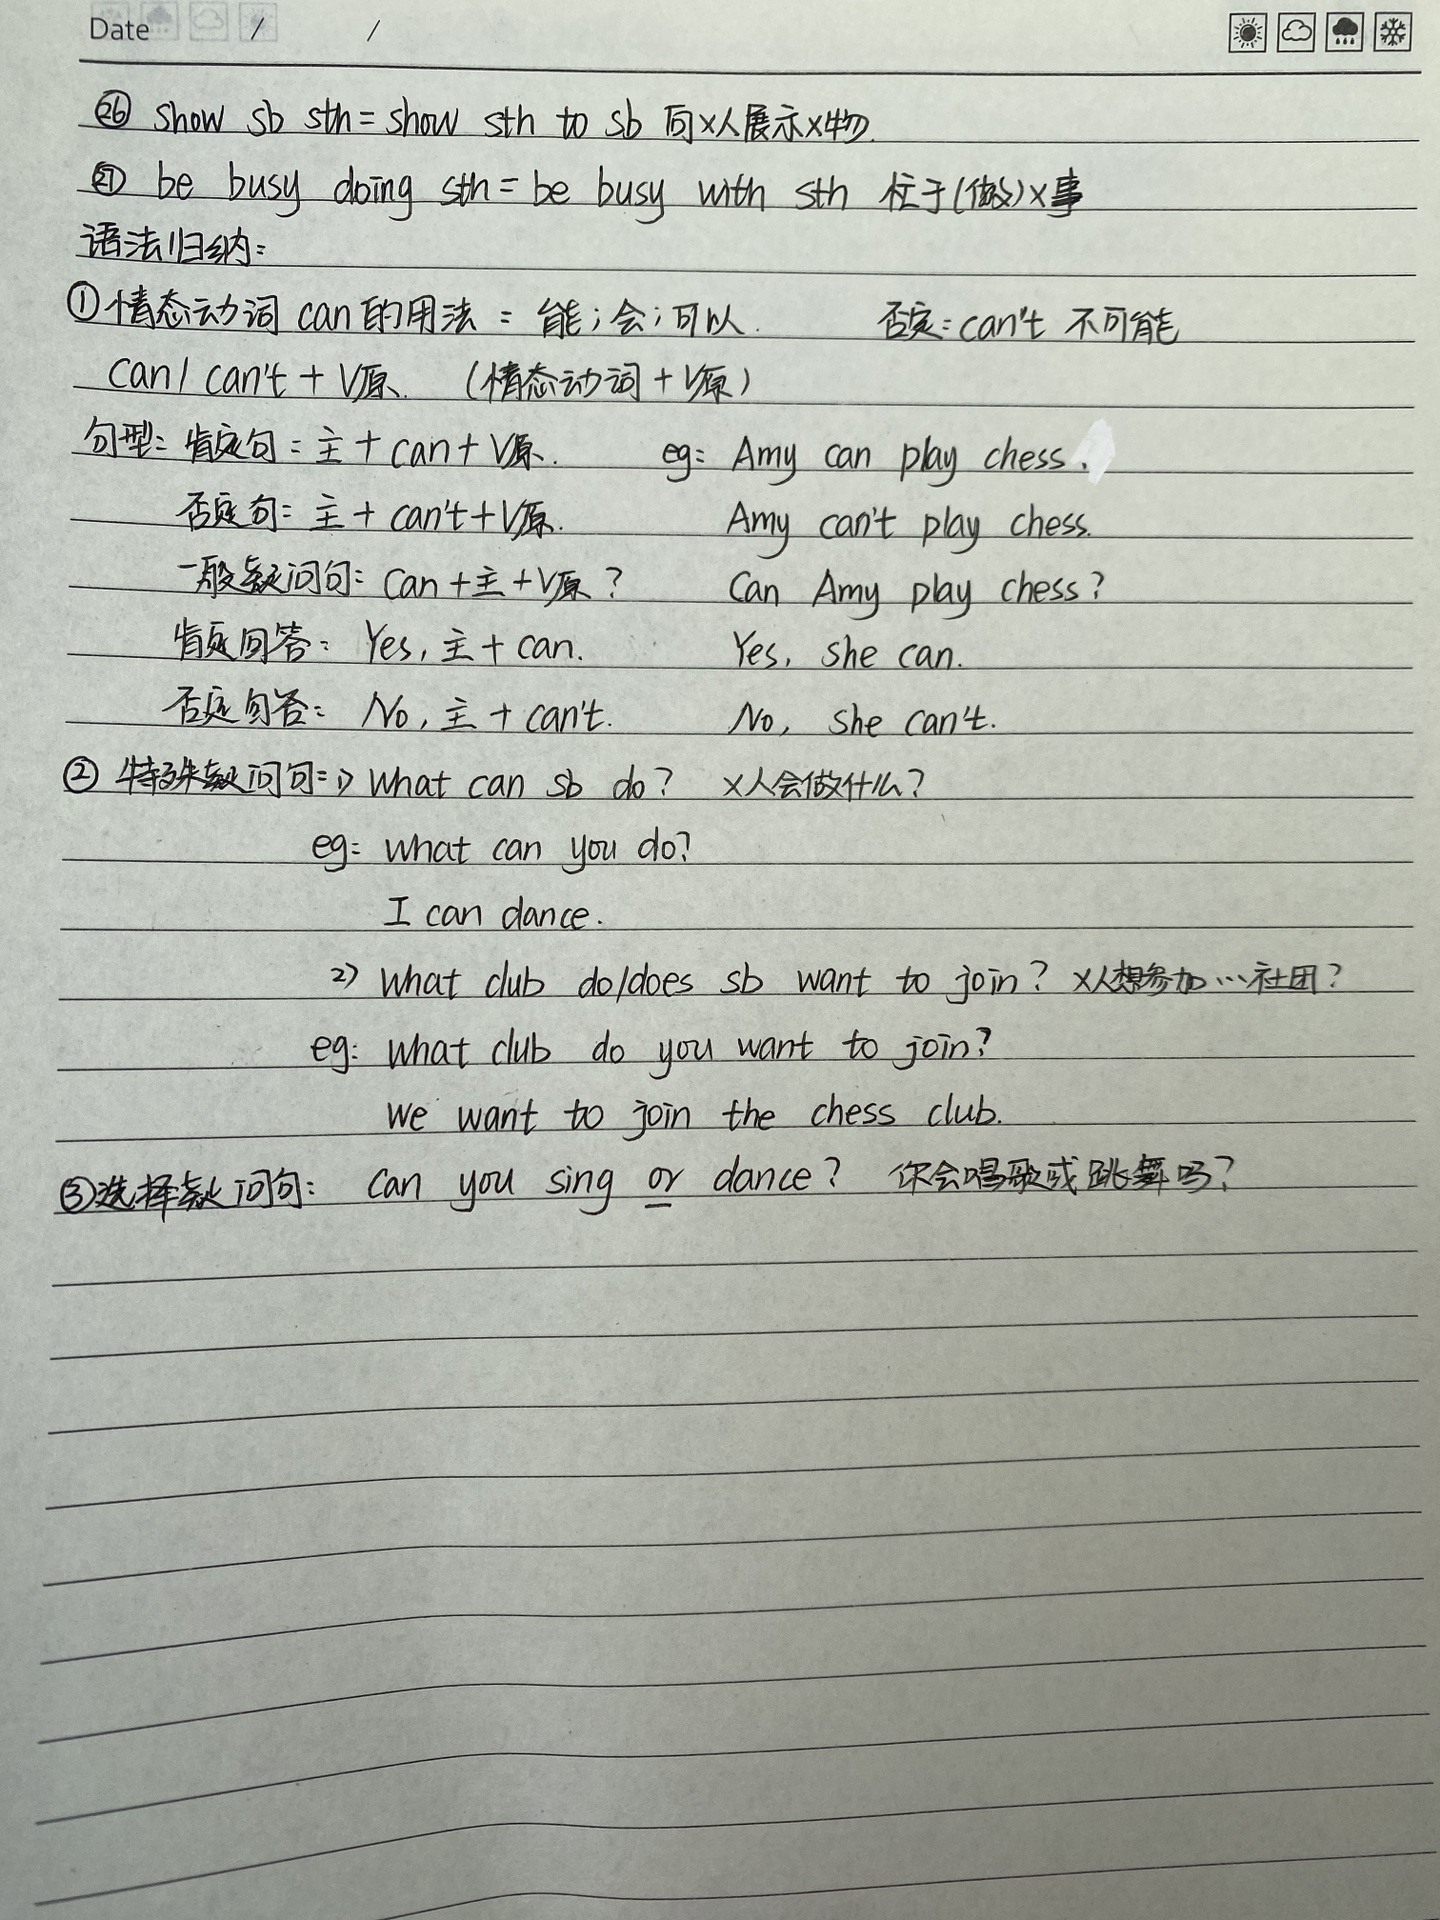 Date / /
㉖ show sb sth = show sth to sb 向×人展示×物.
㉗ be busy doing sth = be busy with sth 忙于(做)×事
语法归纳:
①情态动词 can的用法: 能;会;可以. 否定: can't 不可能
can / can't + V原. (情态动词 + V原)
句型: 肯定句: 主 + can + V原. eg: Amy can play chess.
否定句: 主 + can't + V原. Amy can't play chess.
一般疑问句: Can + 主 + V原 ? Can Amy play chess?
肯定回答: Yes, 主 + can. Yes, she can.
否定回答: No, 主 + can't. No, she can't.
② 特殊疑问句: 1) What can sb do? ×人会做什么?
eg: What can you do?
I can dance.
2) What club do/does sb want to join? ×人想参加…社团?
eg: What club do you want to join?
We want to join the chess club.
③选择疑问句: Can you sing or dance? 你会唱歌或跳舞吗?